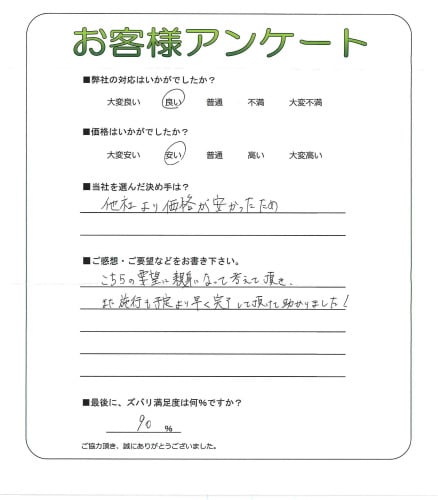 お客様アンケート
■弊社の対応はいかがでしたか?
大変良い 良い 普通 不満 大変不満
■価格はいかがでしたか?
大変安い 安い 普通 高い 大変高い
■当社を選んだ決め手は?
他社より価格が安かったため
■ご感想・ご要望などをお書き下さい。
こちらの要望に親身になって考えて頂き、
また施行も予定より早く完了して頂けて助かりました!
■最後に、ズバリ満足度は何%ですか?
90 %
ご協力頂き、誠にありがとうございました。